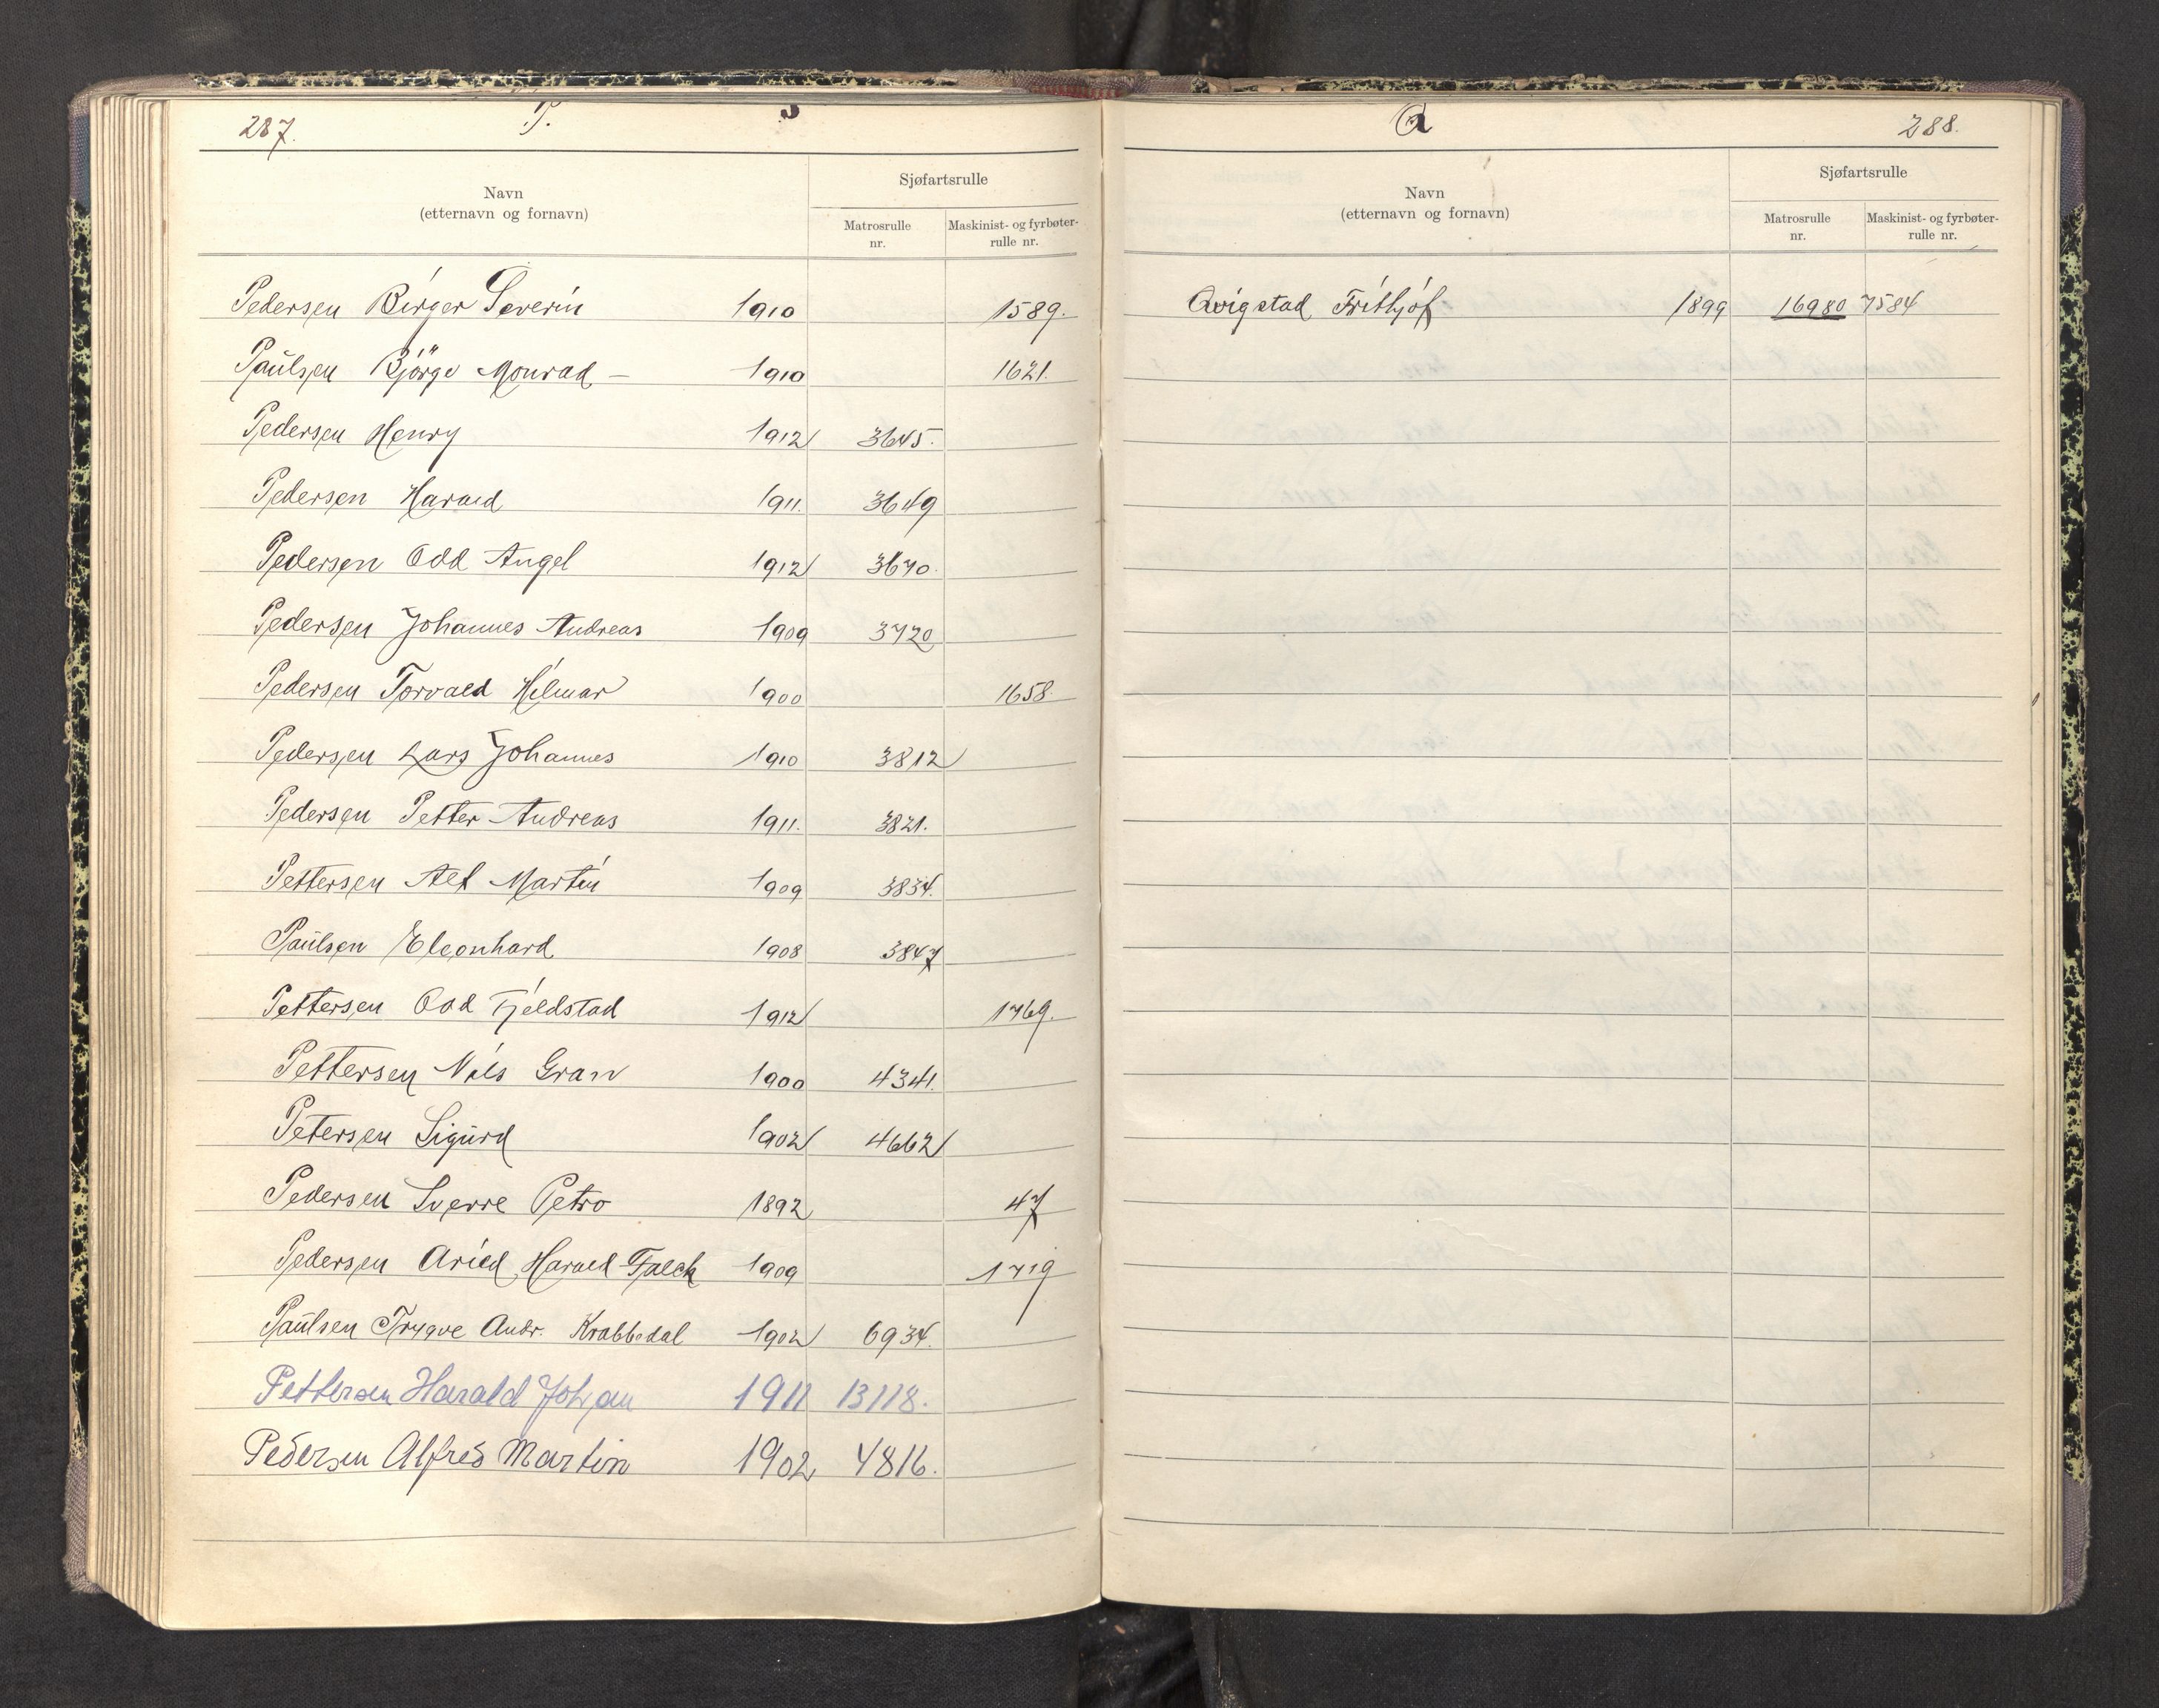 287. P.
Navn
(etternavn og fornavn)
Sjøfartsrulle
Matrosrulle nr.
Maskinist- og fyrbøter-rulle nr.
Pedersen Birger Severin 1910 1589.
Paulsen Björge Monrad – 1910 1621.
Pedersen Henry 1912 3645.
Pedersen Harald 1911. 3649
Pedersen Odd Angel 1912 3670.
Pedersen Johannes Andreas 1909 3720
Pedersen Torvald Hilmar 1900 1658.
Pedersen Lars Johannes 1910 3812
Pedersen Petter Andreas 1911. 3821.
Pettersen Alf Martin 1909 3834.
Paulsen Eleonhard 1908 3847
Pettersen Odd Fjeldstad 1912 1769.
Pettersen Nils Gran 1900 4341.
Petersen Sigurd 1902 4662
Pedersen Sverre Petro 1892 47
Pedersen Arild Harald Falck 1909 1719
Paulsen Trygve Andr. Krabbedal 1902 6934.
Pettersen Harald Johan 1911 13118.
Pedersen Alfred Martin 1902 4816.
Q 288.
Navn
(etternavn og fornavn)
Sjøfartsrulle
Matrosrulle nr.
Maskinist- og fyrbøter-rulle nr.
Qvigstad Frithjof 1899 16980 7584